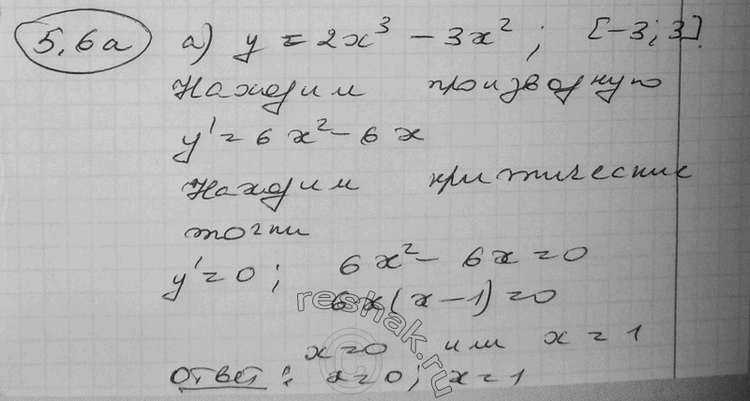 5,6а а) y = 2x³ - 3x² ; [-3; 3].
Находим производную
y' = 6x² - 6x
Находим критические
точки
y' = 0 ; 6x² - 6x = 0
6x(x - 1) = 0
x = 0 или x = 1
Ответ: x = 0; x = 1
reshak.ru